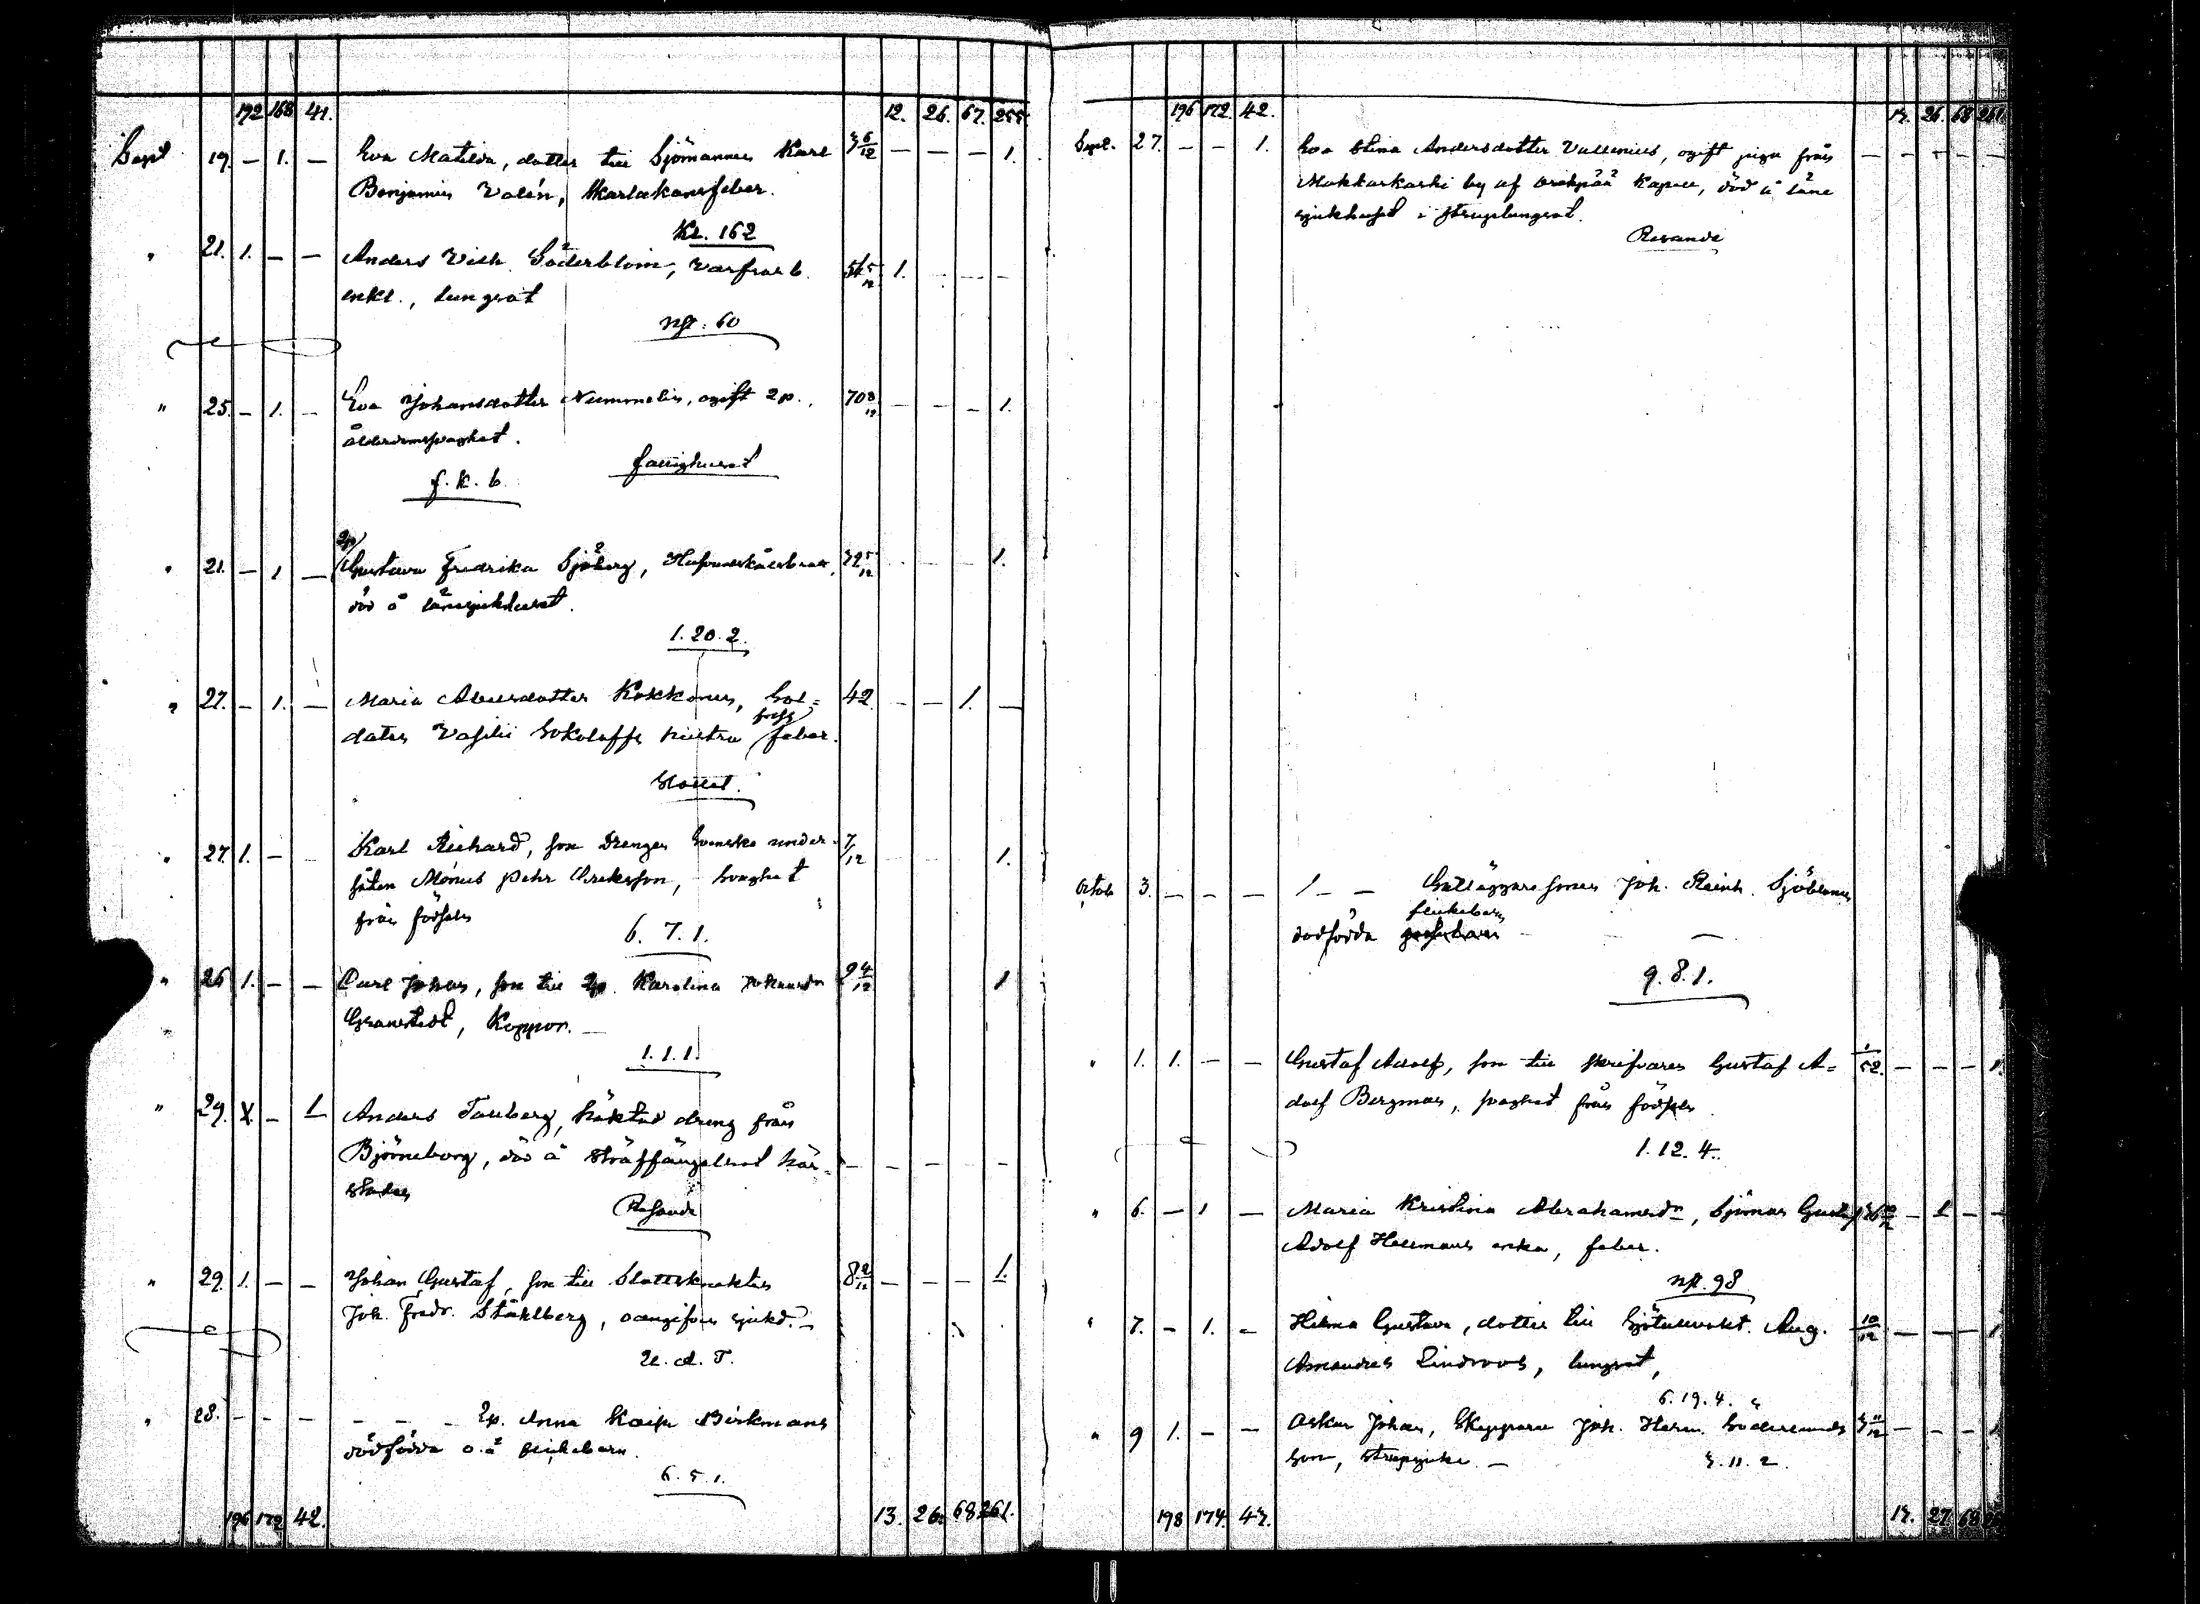 192 168 41. 12. 26. 67. 255.
Sept 19. — 1. — Eva Matilda, dotter till Sjömannen Karl 3 6/12 — — — 1.
Benjamin Valén, Skarlakansfeber.
Kl. 162
" 21. 1. — — Anders Vilh. Söderblom, Varfsarb. 54 5/12 1. — — —
enkl., lungsot
nst. 60
" 25. — 1. — Eva Johansdotter Nummelin, ogift 2p., 70 8/12 — — — 1.
ålderdomssvaghet.
fattighuset
f. k. b.
" 21. — 1 — 2p/ Gustava Fredrika Sjöberg, 32 5/12 1.
död å länssjukhuset.
1. 20. 2.
" 27. — 1. — Maria Abelsdotter Kokkonen, Sol= 42 — — 1. —
daten Vasilii Sokoloffs hustru feber.
Slottet.
" 27. 1. — — Karl Richard, son Drengen Svenska under- 7/12 1.
såten Måns Pehr Erikssons, Svaghet
från födseln
6. 7. 1.
" 26 1. — — Carl Johan, son till 2p. Karolina 2 4/12 1
Granstedt, Koppor. —
1. 1. 1.
" 29. X — 1 Anders Tauberg, häktad dreng från
Björneborg, död å Straffängelset här= — — — —
städes
Resande
" 29. 1. — — Johan Gustaf, son till Slottsknekten 8 2/12 — — — 1.
Joh. Fredr. Ståhlberg, oangifven sjukd. —
U. d. T.
" 28. — — — — — — 2p. Anna Kaisa Birkmans
dödfödda o. ä. flickebarn.
6. 5. 1.
196 172 42. 13. 26. 68 261.
196 172. 42. 13. 26. 68 261.
Sept. 27. — — 1. Eva Stina Andersdotter Vallenius, ogift piga från — — — — —
by af Kapell, död å läns
sjukhuset i struplungsot.
Resande
Octob 3. — — — 1 — — Gatläggaresonen Joh. Reinh. Sjöbloms
flickebarn
dödfödda
9. 8. 1.
" 1. 1. — — Gustaf Adolf, son till skrifvaren Gustaf A= 1/52. — — — 1.
dolf Bergman, svaghet från födseln
1. 12. 4.
" 6. — 1 — Maria Kristina Abrahamsdr, Sjöman Gustaf — 1 — —
Adolf Hellmans enka, feber.
nst. 98
" 7. — 1. — Hilma Gustava, dotter till Sjötullvakt. Aug. 10/12 — — — 1
Amandus Lindroos, lungsot,
6. 19. 4.
" 9 1. — — Oskar Johan, Skepparen Joh. Herm. Söderlunds 3 11/12 — — — 1
son, strupsjuka. — 3. 11. 2.
198 174. 43. 13. 27. 68